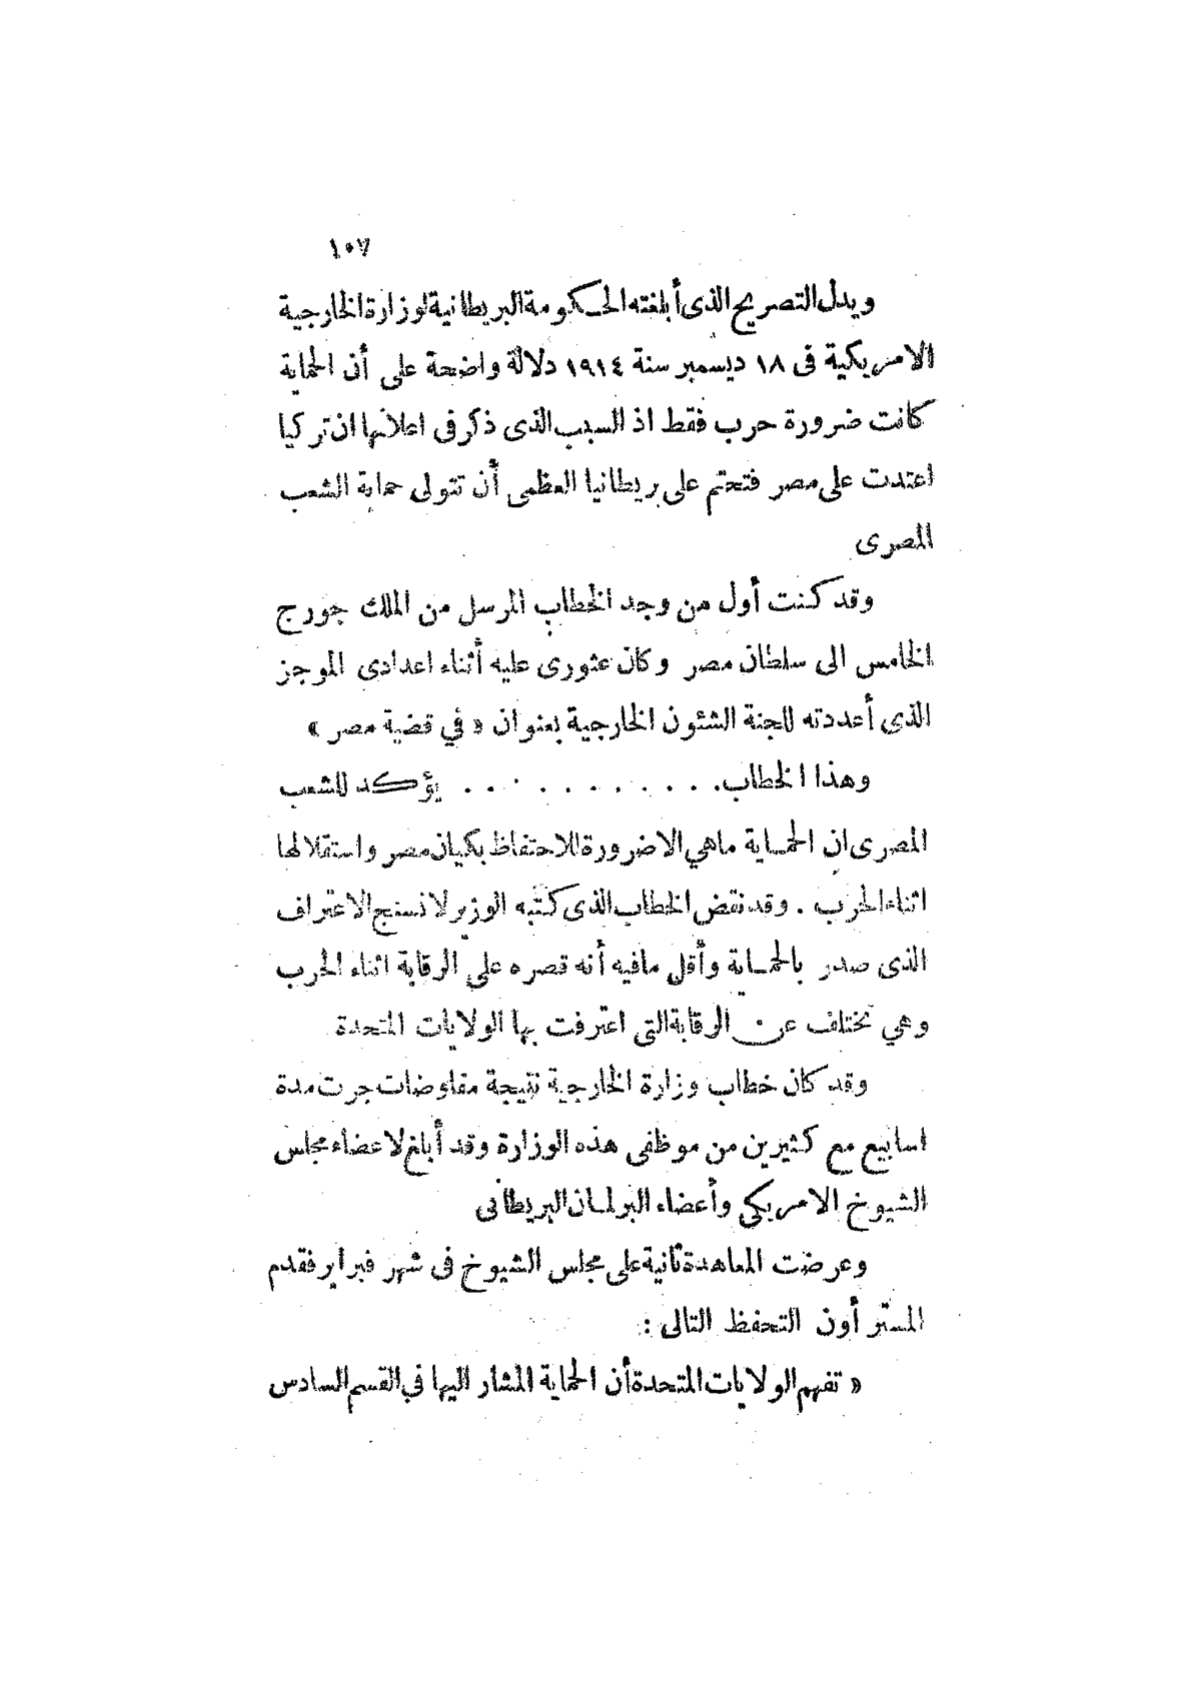 ١٠٧
ويدل التصريح الذى أبلغته الحكومة البريطانية لوزارة الخارجية
الامريكية فى ١٨ ديسمبر سنة ١٩١٤ دلالة واضحة على أن الحماية
كانت ضرورة حرب فقط اذ السبب الذى ذكر فى اعلانها ان تركيا
اعتدت على مصر فتحتم على بريطانيا العظمى أن تتولى حماية الشعب
المصرى
وقد كنت أول من وجد الخطاب المرسل من الملك جورج
الخامس الى سلطان مصر وكان عثورى عليه أثناء اعدادى الموجز
الذى أعددته للجنة الشئون الخارجية بعنوان « في قضية مصر »
وهذا الخطاب . . . . . . . . . . . يؤكد للشعب
المصرى ان الحماية ماهي الا ضرورة للاحتفاظ بكيان مصر واستقلالها
اثناء الحرب . وقد نقض الخطاب الذى كتبه الوزير لانسنج الاعتراف
الذى صدر بالحماية وأقل مافيه أنه قصره على الرقابة اثناء الحرب
وهي تختلف عن الرقابة التى اعترفت بها الولايات المتحدة
وقد كان خطاب وزارة الخارجية نتيجة مفاوضات جرت مدة
اسابيع مع كثيرين من موظفى هذه الوزارة وقد أبلغ لاعضاء مجلس
الشيوخ الامريكى وأعضاء البرلمان البريطانى
وعرضت المعاهدة ثانية على مجلس الشيوخ فى شهر فبراير فقدم
المستر أون التحفظ التالى :
« تفهم الولايات المتحدة أن الحماية المشار اليها في القسم السادس